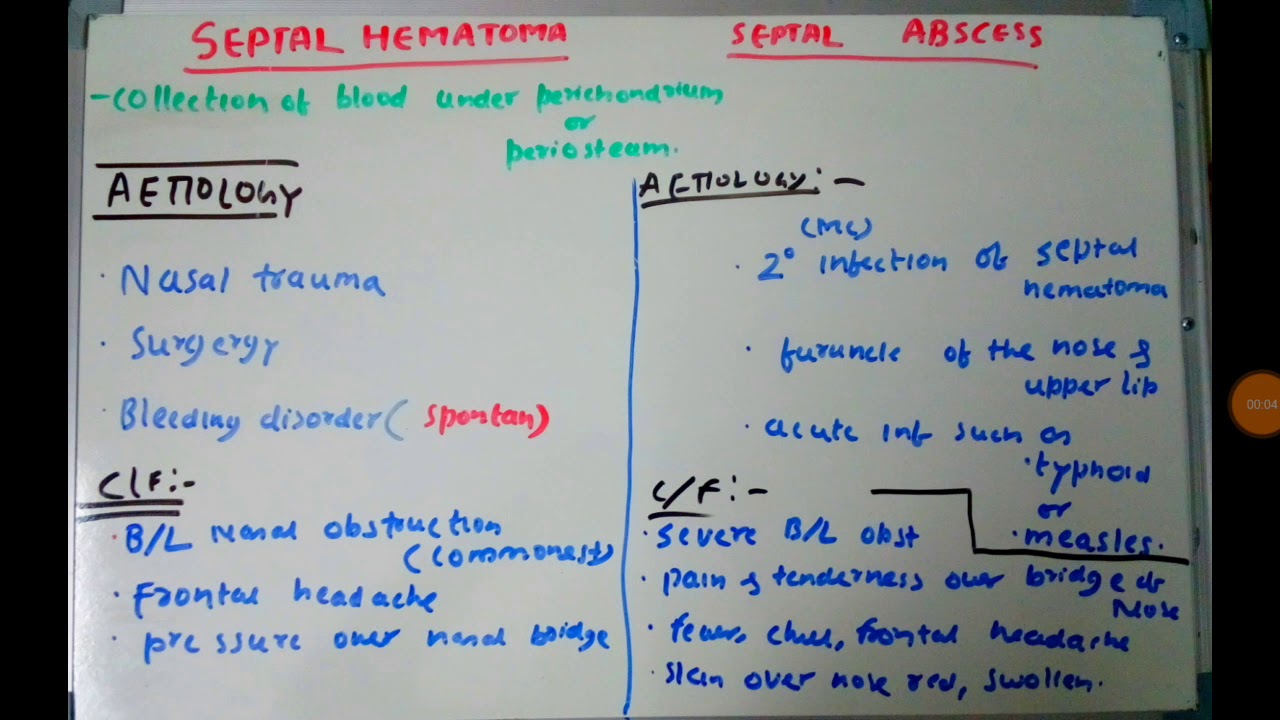 SEPTAL HEMATOMA
- collection of blood under perichondrium
or
periosteam.
AETIOLOGY
· Nasal trauma
· Surgergy
· Bleeding disorder ( spontan)
C/F:-
· B/L Nasal obstruction
(commonest)
· Frontal headache
· pressure over nasal bridge
SEPTAL ABSCESS
AETIOLOGY: -
(MC)
· 2° infection of septal
hematoma
· furuncle of the nose &
upper lip
· acute inf such as
· typhoid
or
· measles.
C/F: -
· severe B/L obst
· pain & tenderness over bridge of
Nose
· fever, chill, frontal headache
· skin over nose red, swollen.
00:04